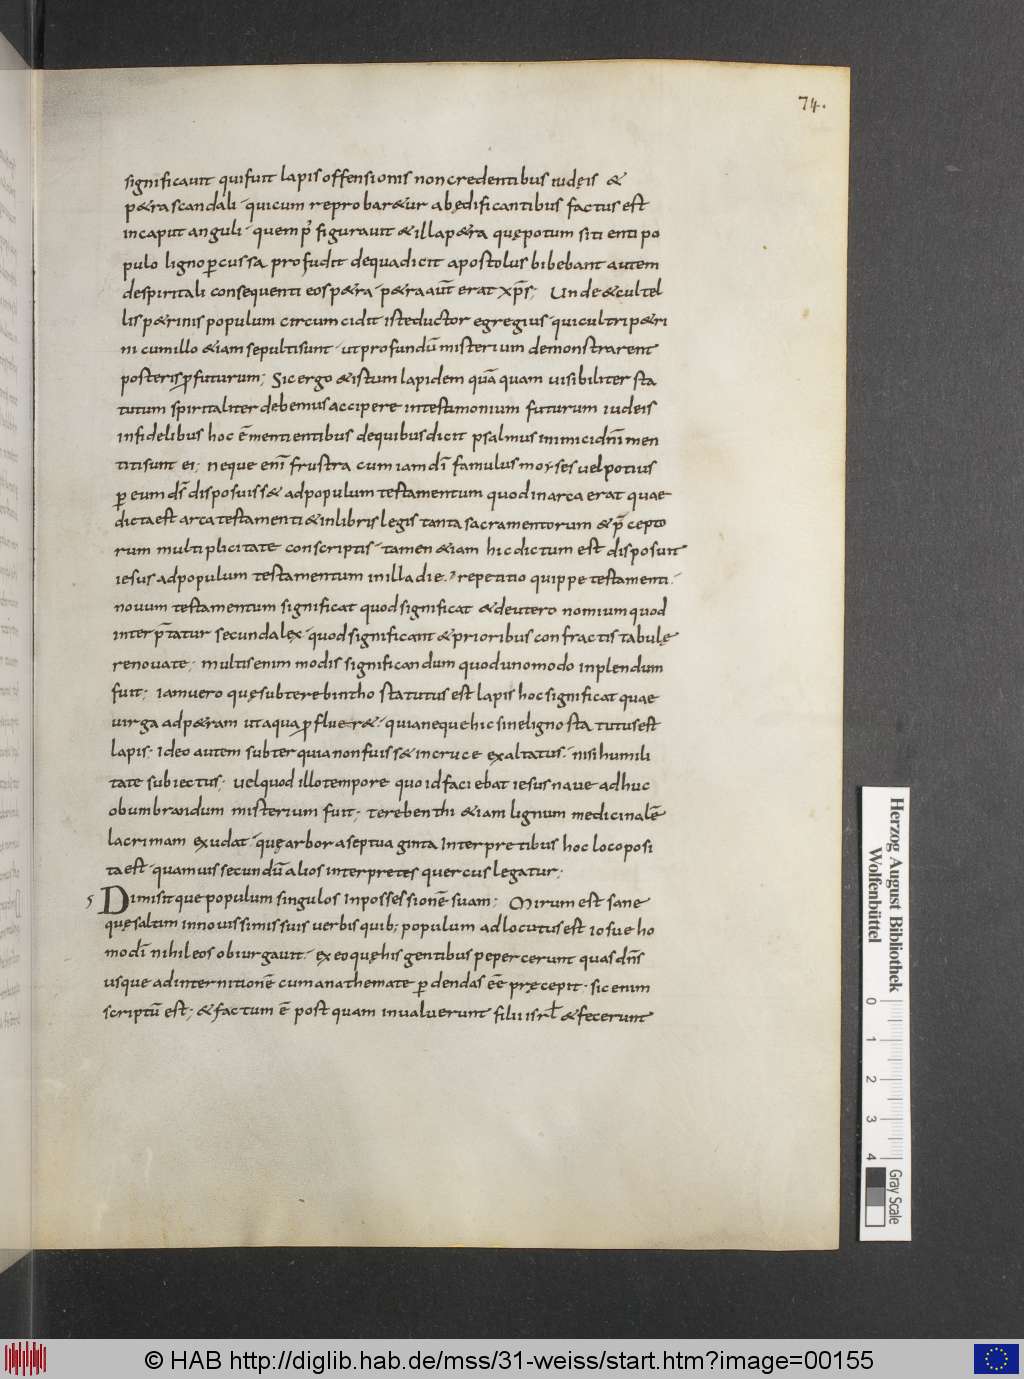 74.
significauit qui fuit lapis offensionis non credentibus iudęis &
p&ra scandali · qui cum reprobar&ur ab ędificantibus factus est
in caput anguli · quem pͥ figurauit & illa p&ra quę potum siti enti po
pulo ligno ꝑcussa profudit de qua dicit apostolus bibebant autem
de spiritali consequenti eos p&ra · p&ra aut̄ erat xp̄s; Unde & cultel
lis p&rinis populum circumcidit iste ductor egregius · qui cultri p&ri
ni cum illo &iam sepulti sunt · ut profundū misterium demonstrarent
posteris ꝑfuturum; Sic ergo & istum lapidem quā quam uisibiliter sta
tutum spiritaliter debemus accipere in testimonium futurum iudeis
infidelibus hoc ē mentientibus de quibus dicit psalmus inimici dn̄i men
titi sunt ei; neque eni̅ frustra cum iam dī famulus moyses uel potius
ꝑ eum ds̄ disposuiss& ad populum testamentum quod in arca erat quae
dicta est arca testamenti & in libris legis tanta sacramentorum & p̄cepto
rum multiplicitate conscriptis · tamen &iam hic dictum est disposuit
iesus ad populum testamentum in illa die · repetitio quippe testamenti ·
nouum testamentum significat quod significat & deuteronomium quod
interp̄tatur secunda lex · quod significant & prioribus confractis tabulę
renouate; multis enim modis significandum quod uno modo inplendum
fuit; iam uero quę subterebintho statutus est lapis hoc significat quae
uirga ad p&ram ut aqua ꝓfluer& · quia neque hic sine ligno statutus est
lapis · Ideo autem subter quia non fuiss& in cruce exaltatus · nisi humili
tate subiectus · uel quod illo tempore quo id faciebat iesus naue adhuc
obumbrandum misterium fuit; terebenthi &iam lignum medicinalē
lacrimam exudat · quę arbor a septuaginta Interpretibus hoc loco posi
ta est · quamuis secundū alios interpretes quercus legatur;
5 Dimisitque populum singulos In possessionē suam; Mirum est sane
quę saltim in nouissimis suis uerbis quib; populum adlocutus est iosue ho
modī nihil eos obiurgauit · ex eo quę his gentibus pepercerunt quas dn̄s
usque ad internitionē cum anathemate ꝑdendas eē pręcepit · sic enim
scriptū est; & factum ē post quam inualuerunt filii isrl̄ & fecerunt
Herzog August Bibliothek
Wolfenbüttel
0 1 2 3 4
Gray Scale
© HAB http://diglib.hab.de/mss/31-weiss/start.htm?image=00155